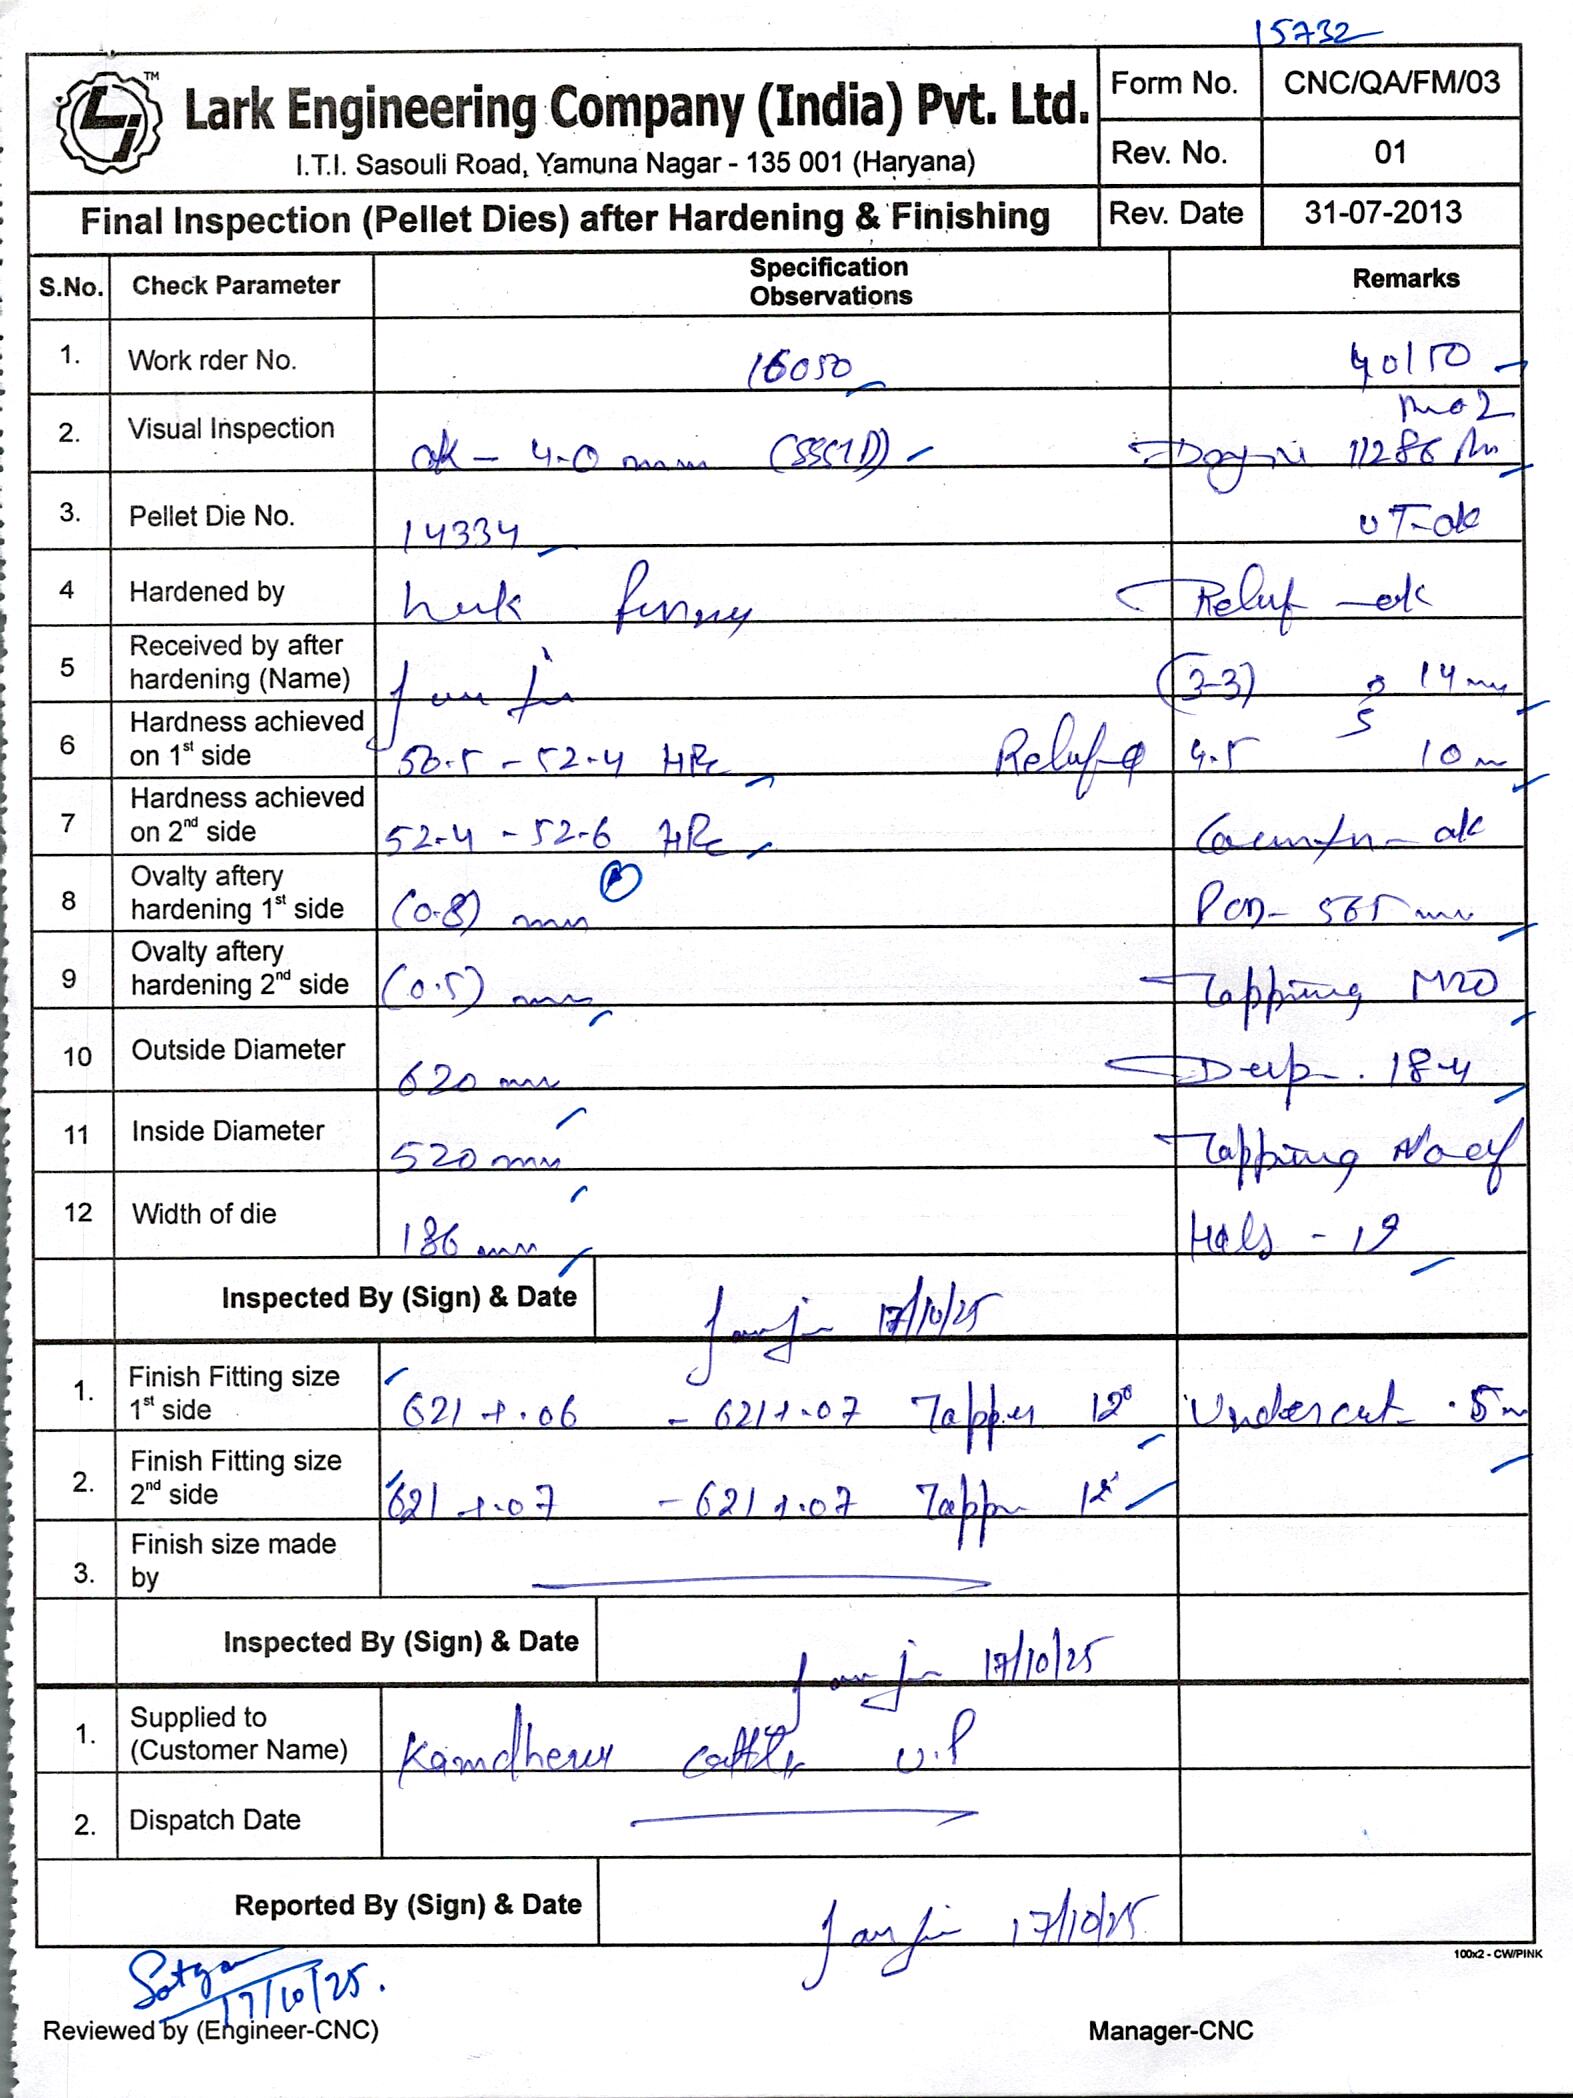 15732
TM
Lark Engineering Company (India) Pvt. Ltd.
I.T.I. Sasouli Road, Yamuna Nagar - 135 001 (Haryana)
Form No. CNC/QA/FM/03
Rev. No. 01
Final Inspection (Pellet Dies) after Hardening & Finishing
Rev. Date 31-07-2013
S.No. Check Parameter Specification Observations Remarks
1. Work rder No. 16050 40/50
2. Visual Inspection ok - 4.0 mm 11286
3. Pellet Die No. 14334 UT-ok
4 Hardened by ok
5 Received by after hardening (Name) (3-3) 14 mm
6 Hardness achieved on 1st side 50.5 - 52.4 HRc 4.5 10 m
7 Hardness achieved on 2nd side 52.4 - 52.6 HRc ok
8 Ovalty aftery hardening 1st side (0.8) mm PCD- 565 mm
9 Ovalty aftery hardening 2nd side (0.5) mm Tapping M20
10 Outside Diameter 620 mm Deep. 18.4
11 Inside Diameter 520 mm Tapping No of
12 Width of die 186 mm Hols - 19
Inspected By (Sign) & Date 17/10/25
1. Finish Fitting size 1st side 621 +.06 - 621+.07 Tapper 12° Undercut .5m
2. Finish Fitting size 2nd side 621 +.07 - 621 +.07 12°
3. Finish size made by
Inspected By (Sign) & Date 17/10/25
1. Supplied to (Customer Name) Kamdhenu cattle U.P
2. Dispatch Date
Reported By (Sign) & Date 17/10/25
100x2 - CW/PINK
Satyam
17/10/25.
Reviewed by (Engineer-CNC) Manager-CNC